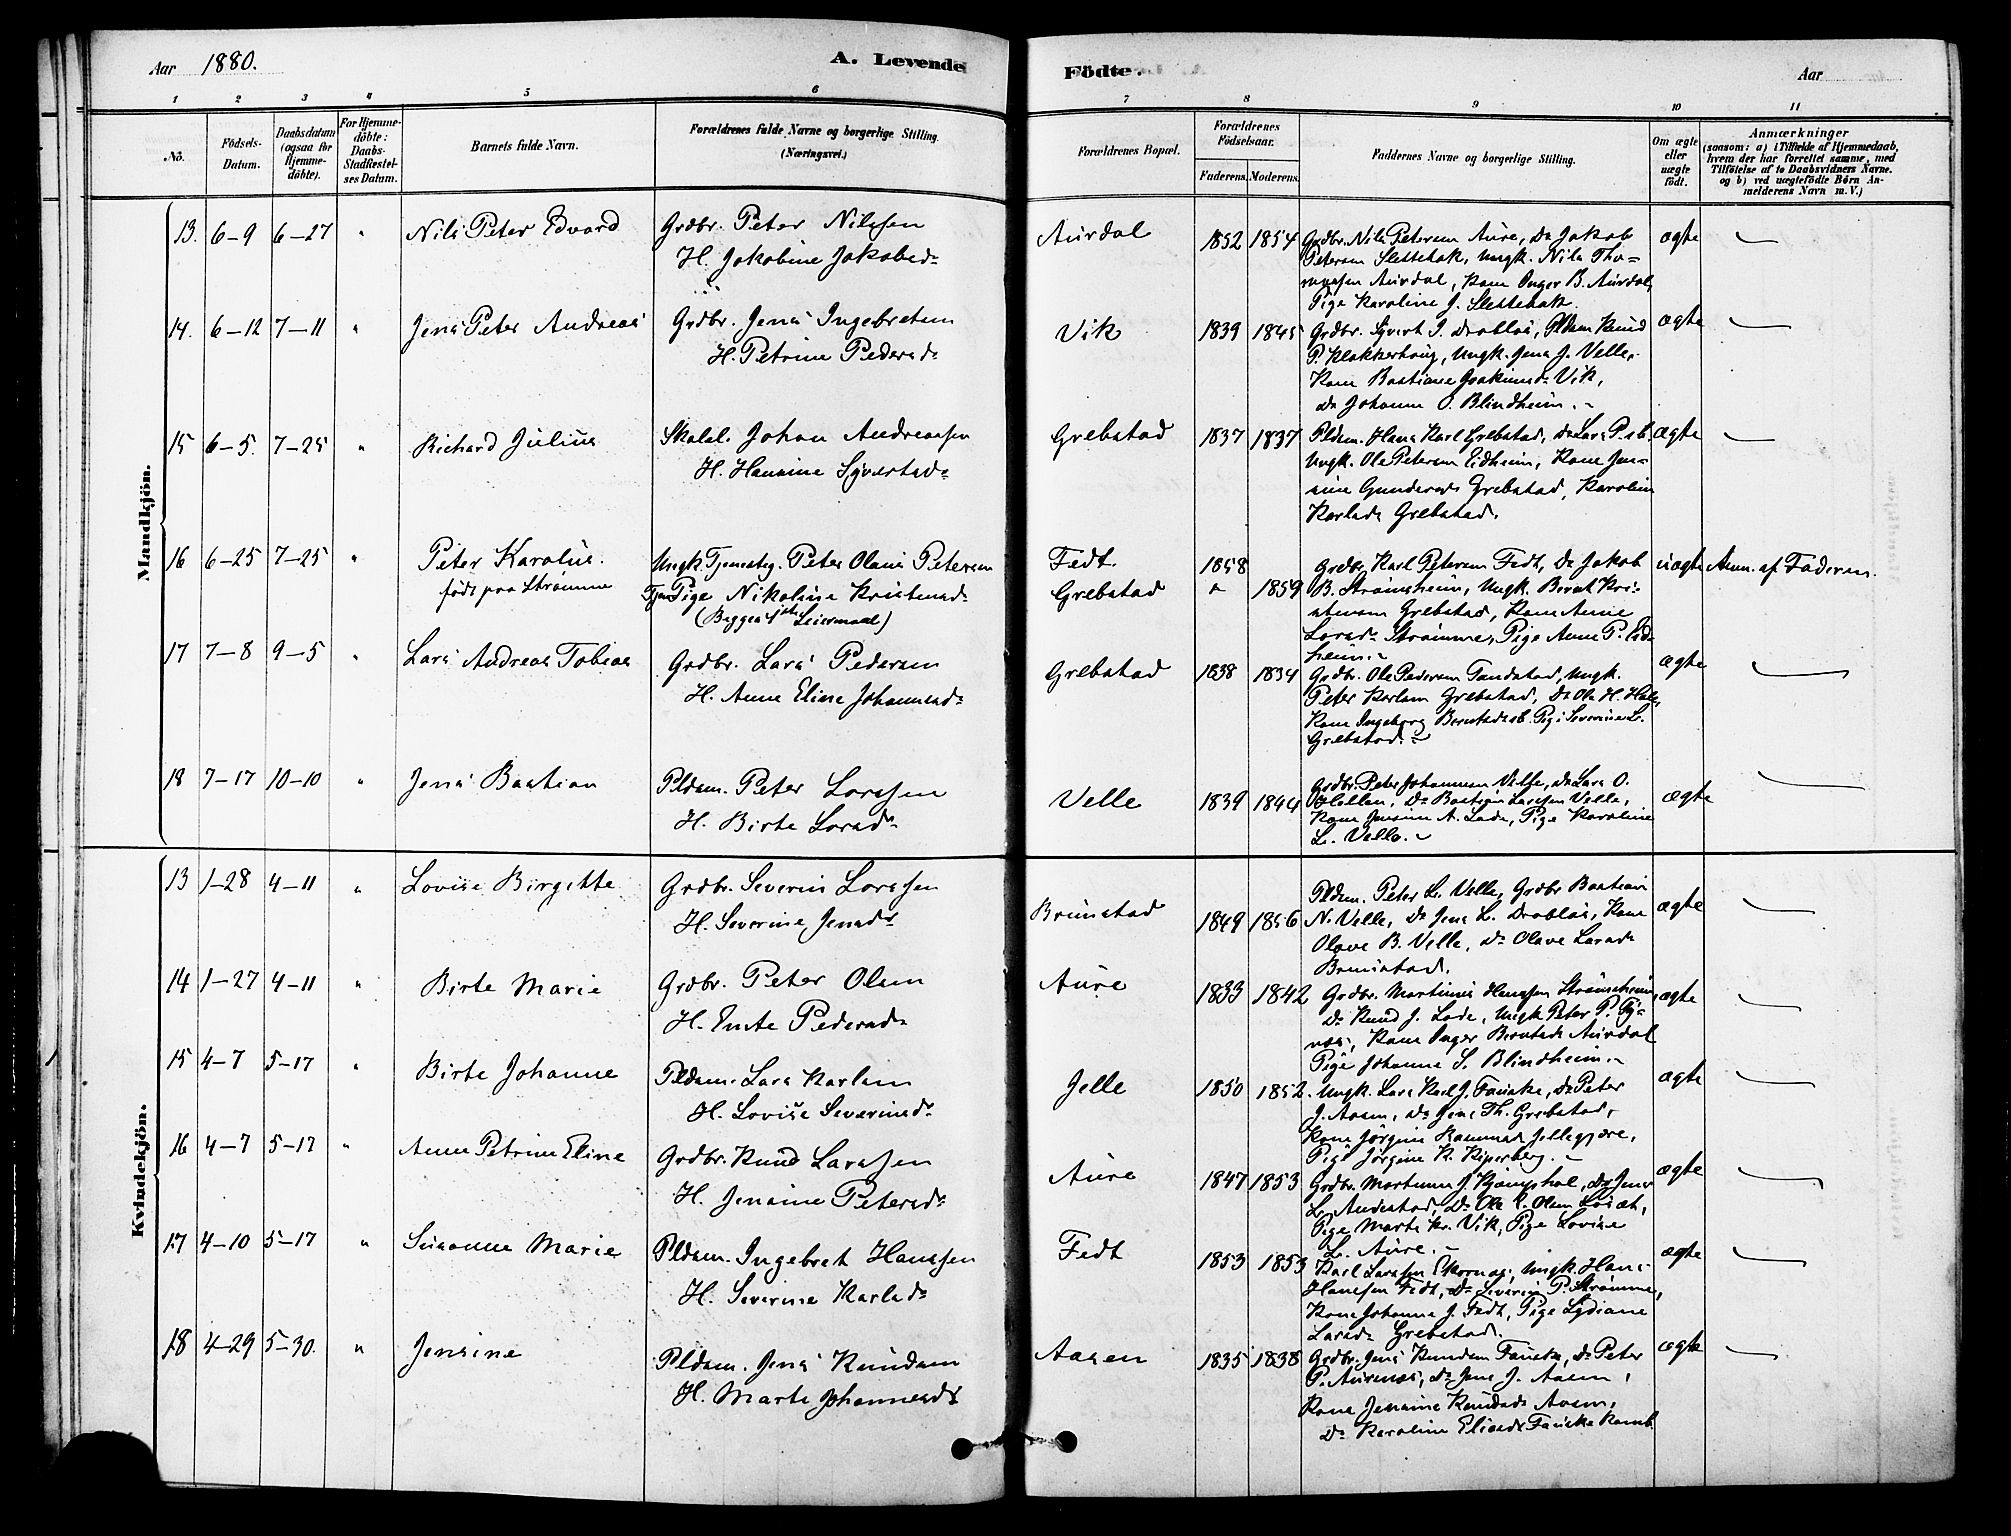 Aar 1880.
A. Levende Födte.
Aar
1 2 3 4 5 6 7 8 9 10 11
No.
Födsels-Datum.
Daabsdatum (ogsaa for Hjemme-döbte).
For Hjemme-döbte: Daabs-Stadfæstel-ses Datum.
Barnets fulde Navn.
Forældrenes fulde Navne og borgerlige Stilling.
(Næringsvei.)
Forældrenes Bopæl.
Forældrenes Födselsaar.
Faderens. Moderens.
Faddernes Navne og borgerlige Stilling.
Om ægte eller uægte födt.
Anmærkninger
(saasom: a) i Tilfælde af Hjemmedaab,
hvem der har forrettet samme, med
Tilföielse af to Daabsvidners Navne.
og b) ved uægtefödte Börn An-
melderens Navn m. V.)
Mandkjön.
13. 6-9 6-27 " Nils Peter Edvard
Grdbr. Peter Nilssen
H. Jakobine Jakobsd.
Aurdal 1852 1854
Grdbr. Nils Petersen Aure, Do Jakob
Petersen Slettebak, Ungk. Nils Tho-
massen Aurdal, Kone Inger B. Aurdal,
Pige Karoline J. Slettebak.
ægte
14. 6-12 7-11 " Jens Peter Andreas
Grdbr. Jens Ingebretsen
H. Petrine Pedersd.
Vik 1839 1845
Grdbr. Syvert I. Drabløs, Pldsm. Knud
P. Klokkerhaug, Ungk. Jens J. Velle,
Kone Bastiane Joakimsd. Vik,
Do Johanne O. Blindheim.
ægte
15 6-5. 7-25 " Richard Julius
Skolel. Johan Andreassen
H. Hansine Syvertsd.
Grebstad 1837 1837
Pldsm. Hans Karl Grebstad, Do Lars P. sb.
Ungk. Ole Petersen Eidheim, Kone Jen-
sine Gundersd. Grebstad, Karoline
Karlsd. Grebstad.
ægte
16 6-25 7-25 " Peter Karolus.
født paa Strømme
Ungk. Tjenestg. Peter Olaus Petersen
Tjen. Pige Nikoline Kristensd.
(Begges 1ste Leiermaal)
Fedt. 1858
Grebstad " 1859
Grdbr. Karl Petersen Fedt, Do Jakob
B. Strømsheim, Ungk. Bernt Kri-
stensen Grebstad, Kone Anne
Larsd. Strømme, Pige Anne P. Eid-
heim.
uægte Anm. af Faderen.
17 7-8 9-5 " Lars Andreas Tobias
Grdbr. Lars Pedersen
H. Anne Eline Johannesd.
Grebstad 1838 1834
Grdbr. Ole Pedersen Tandstad, Ungk.
Peter Karlsen Grebstad, Do Ole H. Hole,
Kone Ingeborg Berntsd. sb. Pige Severine L.
Grebstad.
ægte
18 7-17 10-10 " Jens Bastian
Pldsm. Peter Larssen
H. Birte Larsd.
Velle 1839 1844
Grdbr. Peter Johannesen Velle, Do Lars O.
Do Bastian Larssen Velle,
Kone Jensine A. Lade, Pige Karoline
L. Velle.
ægte
Kvindekjön.
13 1-28 4-11 " Lovise Birgitte
Grdbr. Severin Larssen
H. Severine Jensd.
Brunstad 1849 1856
Pldsm. Peter L. Velle, Grdbr. Bastian
N. Velle, Do Jens L. Drabløs, Kone
Olave B. Velle, Do Olave Larsd.
Brunstad.
ægte
14 1-27 4-11 " Birte Marie
Grdbr. Peter Olsen
H. Ente Pedersd.
Aure 1833 1842
Grdbr. Martinus Hanssen Strømsheim,
Do Knud J. Lade, Ungk. Peter P. Ty-
nes, Kone Inger Berntsd. Aurdal
Pige Johanne S. Blindheim.
ægte
15 4-7 5-17 " Birte Johanne
Pldsm. Lars Karlsen
H. Lovise Severinsd.
Jelle 1850 1852.
Ungk. Lars Karl J. Fauske, Do Peter
J. Aasen, Do Jens Th. Grebstad,
Kone Jørgine Rasmusd. Jellegjære,
Pige Jørgine K. Kiperberg.
ægte
16 4-7 5-17 " Anne Petrine Eline
Grdbr. Knud Larssen
H. Jensine Petersd.
Aure 1847 1853
Grdbr. Martinus J. Kjemphol, Do Jens
L. Andestad, Do Ole Olsen Løset,
Pige Marte Kr. Vik, Pige Lovise
L. Aure.
ægte
17 4-10 5-17 " Susanne Marie
Pldsm. Ingebret Hanssen
H. Severine Karlsd.
Fedt 1853 1853
Karl Larssen Ekornæs, Ungk. Hans
Hanssen Fedt, Do Severin P. Strømme,
Kone Johanne J. Fedt, Pige Lydiane
Larsd. Grebstad.
ægte
18 4-29 5-30. " Jensine
Pldsm. Jens Knudsen
H. Marte Johannesd.
Aasen 1835 1838
Grdbr. Jens Knudsen Fauske, Do Peter
P. Aurenes, Do Jens J. Aasen,
Kone Jensine Knudsd. Aasen,
Do Karoline Eliasd. Fauske
ægte